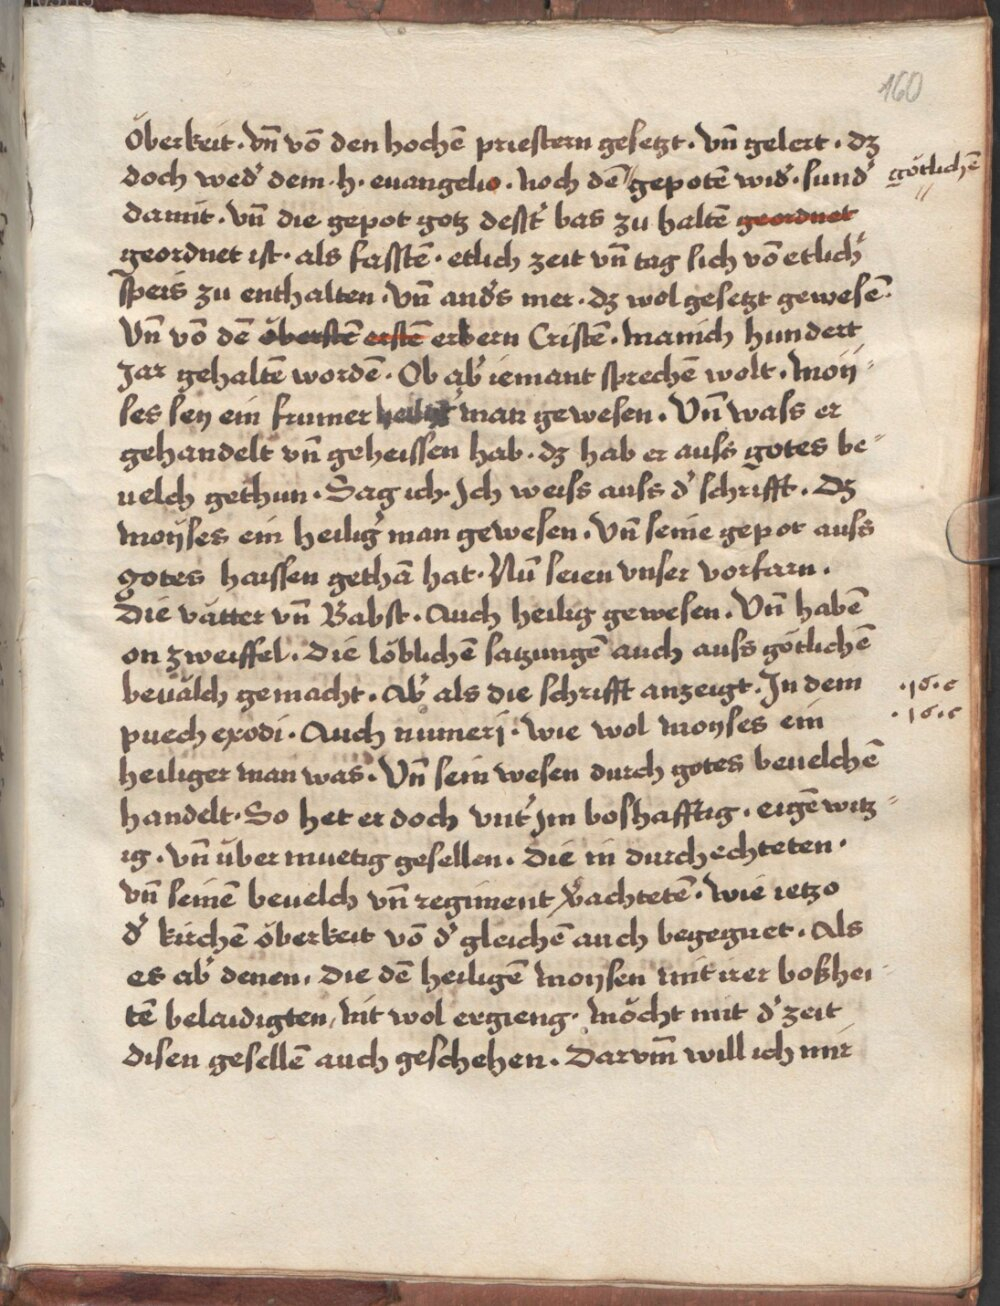 160
öberkeit · vn̄ vō den hochē priestern gesetzt · vn̄ gelert · dz
doch wed' dem · h · euangelio · noch dē " gepotē wid' · sund'
götlichē
damit · vn̄ die gepot gotz dest' bas zu haltē geordnet
geordnet ist · als fasstē · etlich zeit vn̄ tag sich vō etlich'
speis zu enthalten · vn̄ and's mer · dz wol gesetzt gewesē ·
Vn̄ vō dē öberstē erstē erbern Cristē · manich hundert
Jar gehaltē wordē · Ob ab' iemant sprechē wolt · Moÿ-
ses sey ein frumer heilig' man gewesen · Vn̄ wass er
gehandelt vn̄ geheissen hab · dz hab er auss gotes be-
uelch gethun · Sag ich · Ich weiss auss d' schrifft · Dz
Moÿses ein heilig' man gewesen · Vn̄ seine gepot auss
gotes haissen gethā hat · Nū seien vnser vorfarn ·
Die vätter vn̄ Babst · Auch heilig gewesen · Vn̄ habē
on zweiffel · Die löblichē satzungē auch auss götlichē
beuälch gemacht · Ab' als die schrifft anzeigt · In dem
· 16 · c
puech exodi · Auch numerj · wie wol moyses ein
· 16 · c
heiliger man was · Vn̄ sein wesen durch gotes beuelchē
handelt · So het er doch vnt' jm boshafftig · eigē witz-
ig · vn̄ über muetig gesellen · Die in durchechteten ·
vn̄ seinē beuelch vn̄ regiment v'achtetē · Wie ietzo
d' kirchē öberkeit vō d' gleichē auch begegnet · Als
es ab' denen · Die dē heiligē Moysen mit irer boßhei-
tē belaidigten / nit wol ergieng · Möcht mit d' zeit
disen gesellē auch geschehen · Darvm̄ will ich mir